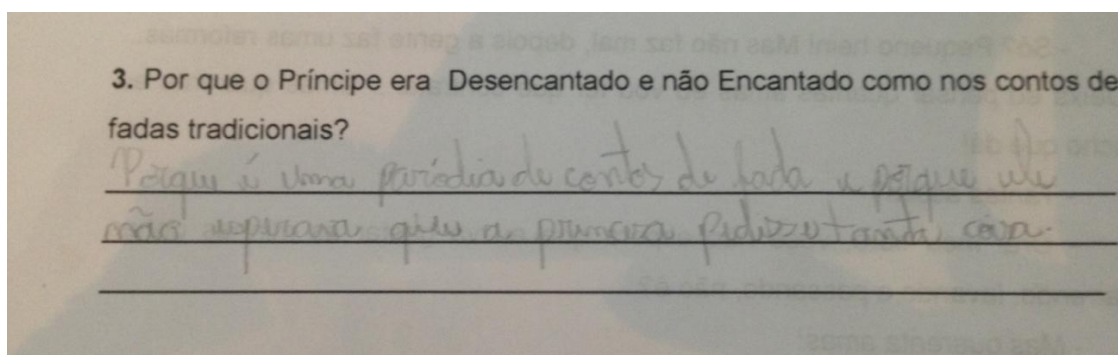 3. Por que o Príncipe era Desencantado e não Encantado como nos contos de
fadas tradicionais?
Porque é uma paródia de contos de fada e porque ele
não esperava que a princesa pedisse tanta coisa.